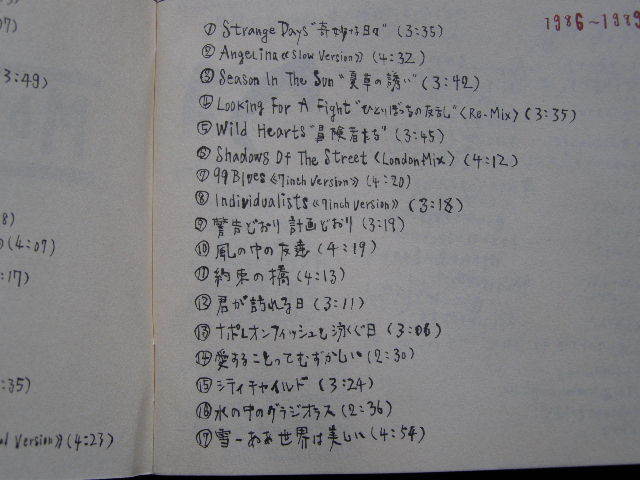 07)
3:49)
8)
の(4:07)
:17)
:35)
al Version》(4:23)
1986~1989
① Strange Days "奇妙な日々" (3:35)
② Angelina《Slow Version》(4:32)
③ Season In The Sun "夏草の誘い" (3:42)
④ Looking For A Fight "ひとりぼっちの反乱"〈Re-Mix〉(3:35)
⑤ Wild Hearts "冒険者たち" (3:45)
⑥ Shadows Of The Street〈London Mix〉(4:12)
⑦ 99 Blues《7inch Version》(4:20)
⑧ Individualists《7inch Version》(3:18)
⑨ 警告どおり 計画どおり (3:19)
⑩ 風の中の友達 (4:19)
⑪ 約束の橋 (4:13)
⑫ 君が訪れる日 (3:11)
⑬ ナポレオンフィッシュと泳ぐ日 (3:06)
⑭ 愛することってむずかしい (2:30)
⑮ シティチャイルド (3:24)
⑯ 水の中のグラジオラス (2:36)
⑰ 雪－ああ世界は美しい (4:54)